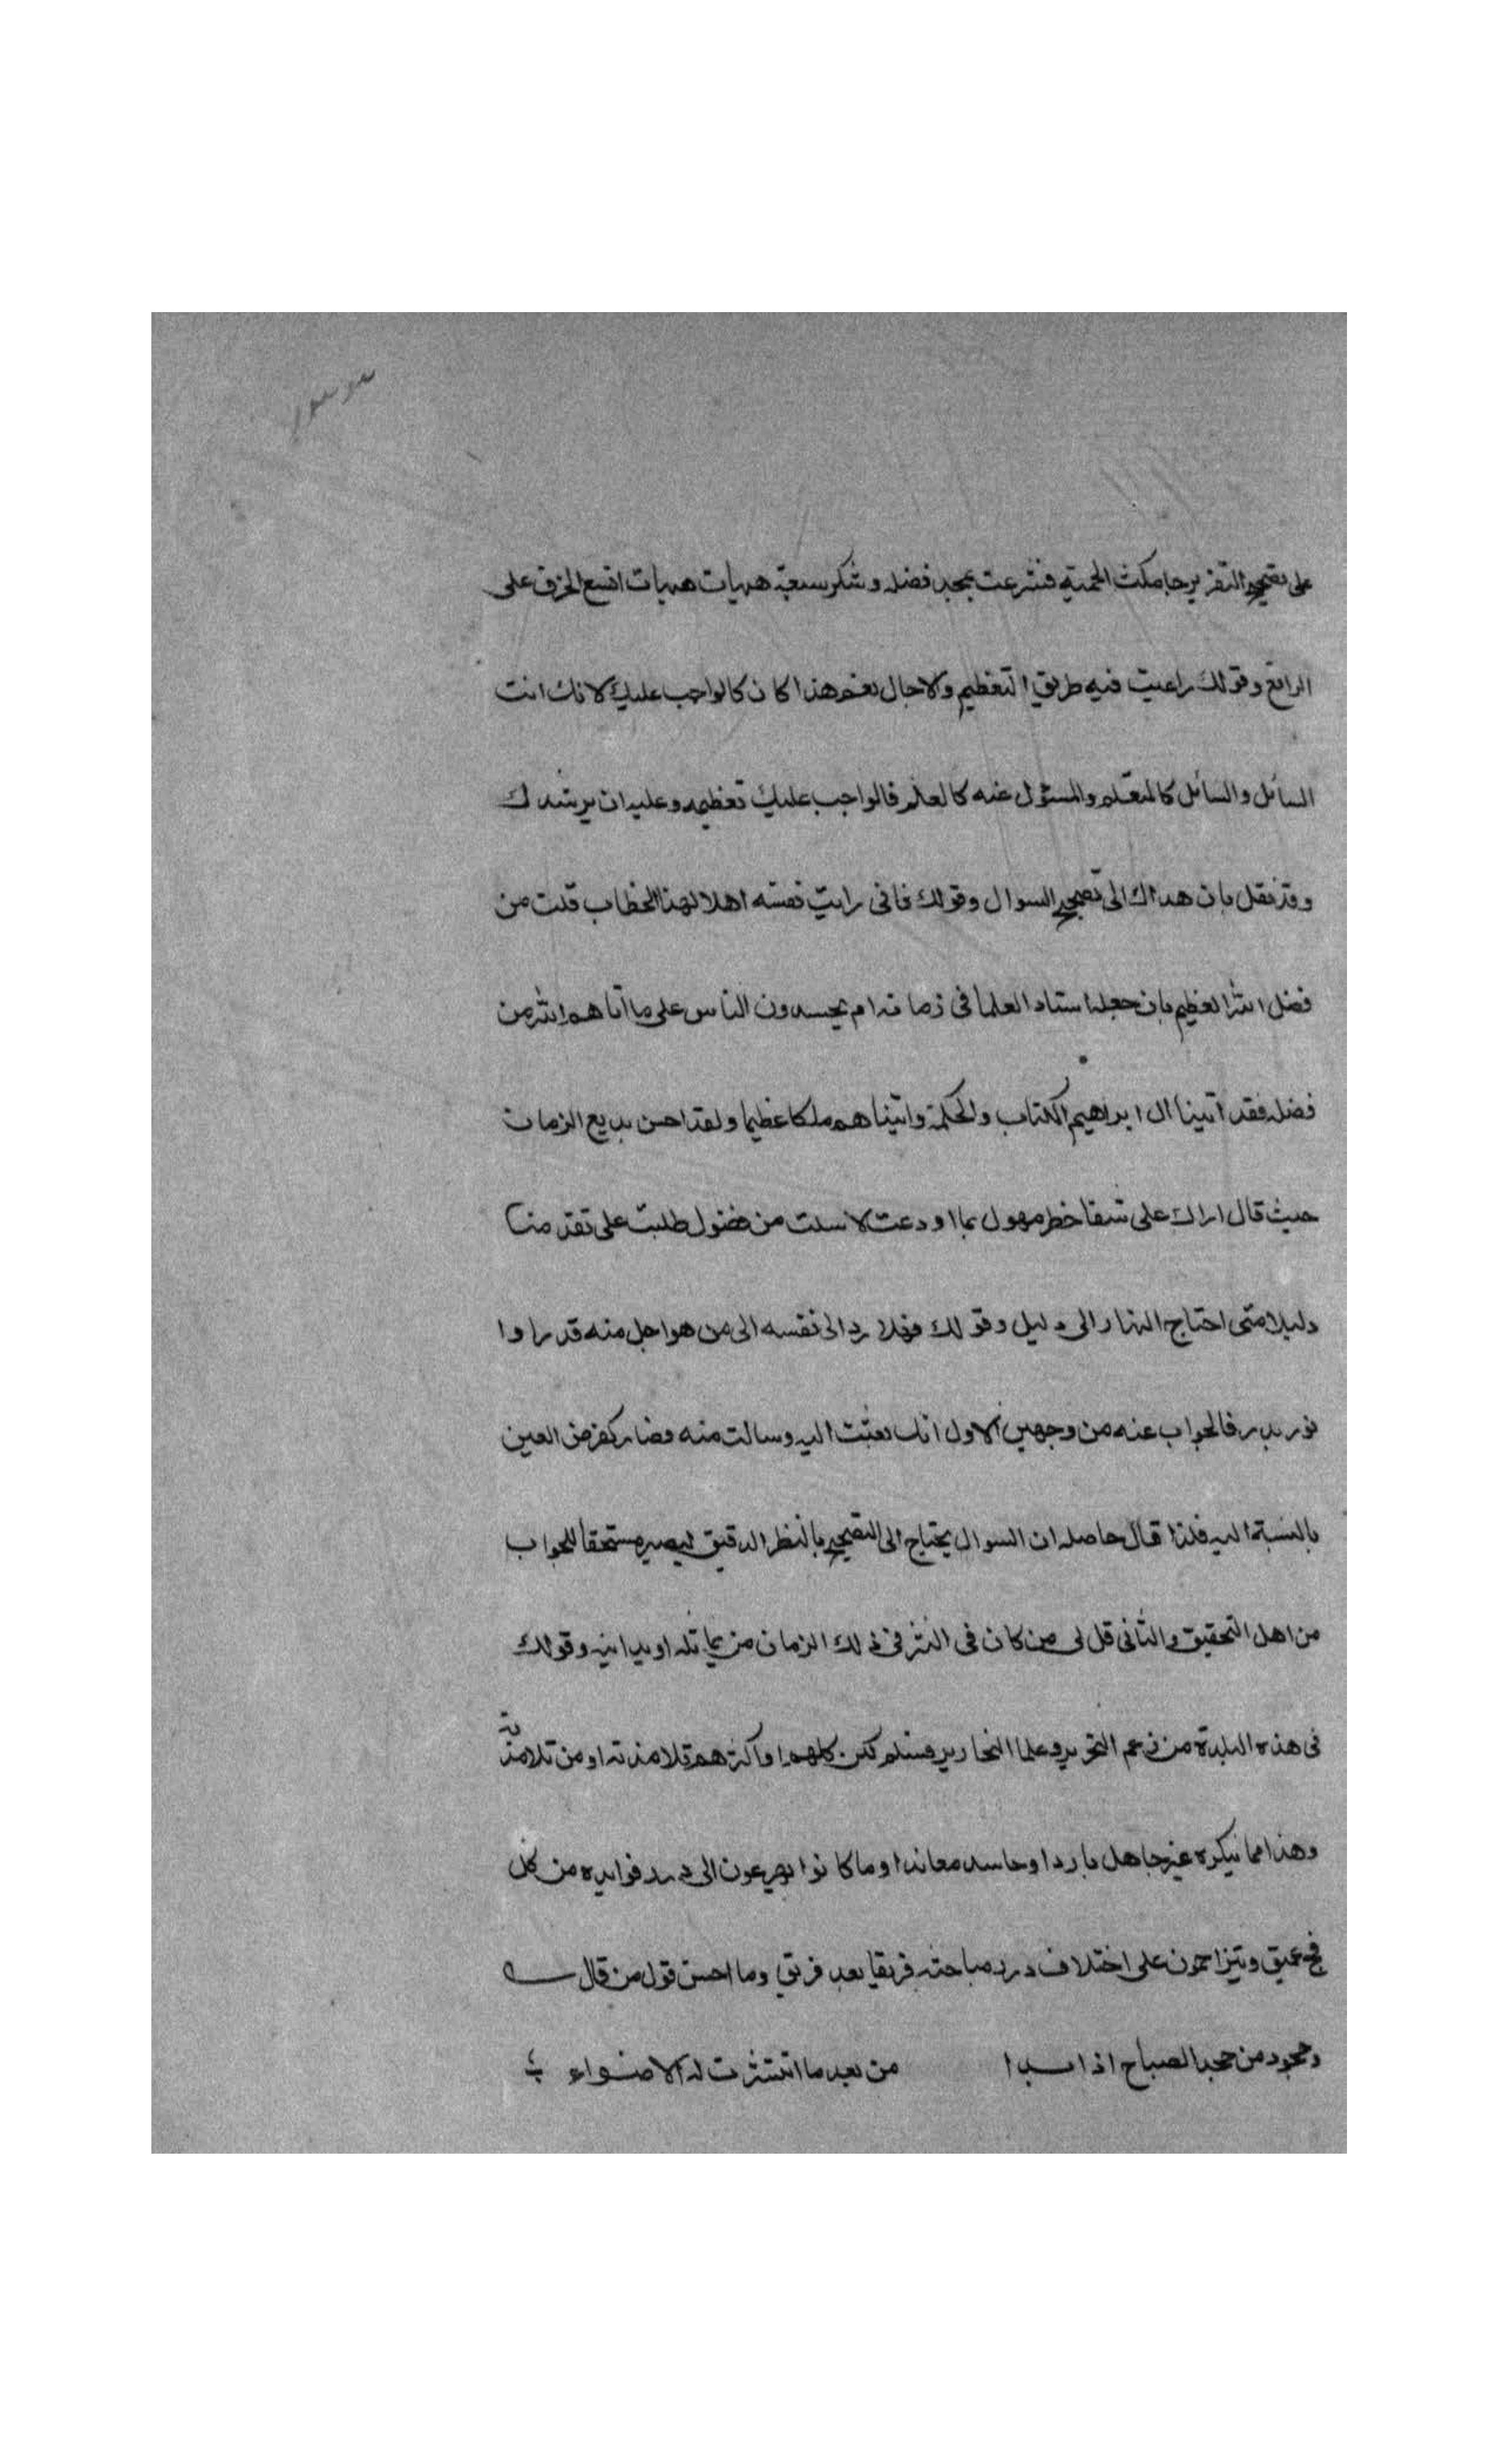 على تصحيح التقرير حاملك الحمية فشرعت بمجد فضله وشكر سعيه هيهات هيهات اتسع الخرق على
الراقع وقولك راعيت فيه طريق التعظيم والاجال نعم هذا كان كالواجب عليك لانك انت
السائل والسائل كالمتعلم والمسئول عنه كالعلم فالواجب عليك تعظيمه وعليه ان يرشدك
وقد نقل بان هداك الى تصحيح السوال وقولك فانى رايت نفسه اهلا لهذا الخطاب قلت من
فضل الله العظيم بان جعله استاد العلما فى زمانه ام يحسدون الناس على ما آتاهم الله من
فضله فقد آتينا ال ابراهيم الكتاب والحكمة واتيناهم ملكا عظيما ولقد احسن بديع الزمان
حيث قال اراك على شفا خطر مهول بما اودعت لاسك من فضول طلبت على تقدمنا
دليلا متى احتاج النهار الى دليل وقولك فهلا رد الى نفسه الى من هو اجل منه قدرا وا
نور بدر فالجواب عنه من وجهين الاول انك بعثت اليه وسالت منه فصار كفرض العين
بالنسبة اليه فلذا قال حاصله ان السوال يحتاج الى التصحيح بالنظر الدقيق ليصير مستحقا للجواب
من اهل التحقيق والثانى قل لى من كان فى الشرف فى ذلك الزمان من يماثله او يدانيه وقولك
فى هذه البلدة من زعم التحرير وعلما النحارير مسلم لكن كلهم او اكثرهم تلامذته او من تلامذته
وهذا مما ينكره غير جاهل باردا وحاسد معاندا وما كانوا يهرعون الى درر فوايده من كل
فج عميق ويتزاحمون على اختلاف درر مباحثه فريقا بعد فريق وما احسن قول من قال
ومجود من جحد الصباح اذا بدا من بعد ما انتشرت له الاضواء